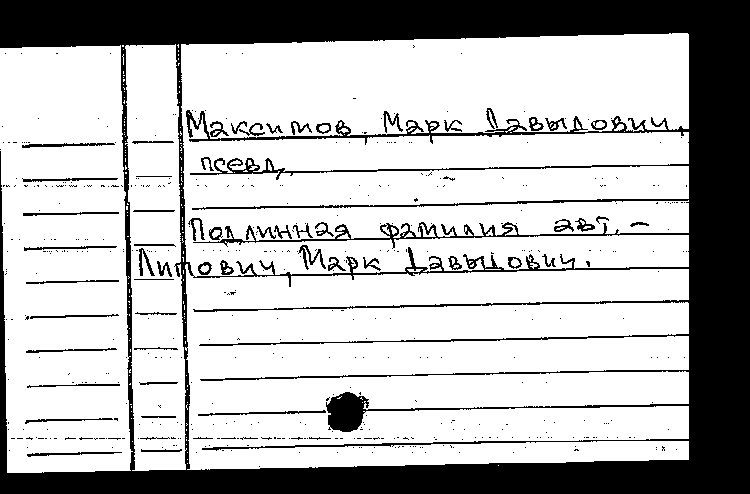 Максимов, Марк Давыдович,
псевд.
Подлинная фамилия авт. –
Липович, Марк Давыдович.